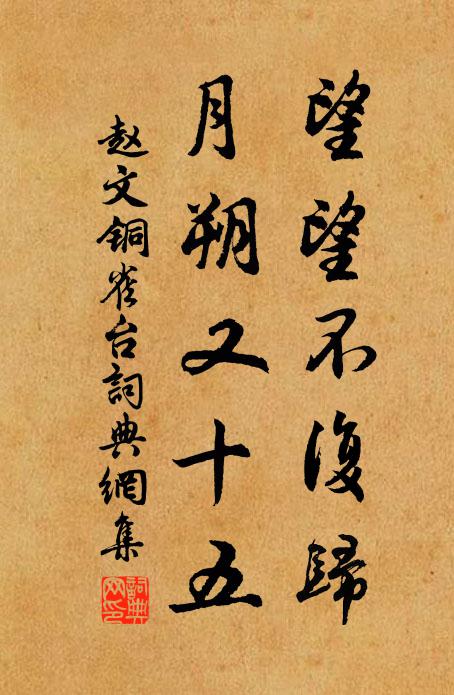 望望不復歸
月朔又十五
赵文铜雀台詞典網集
詞典
网印